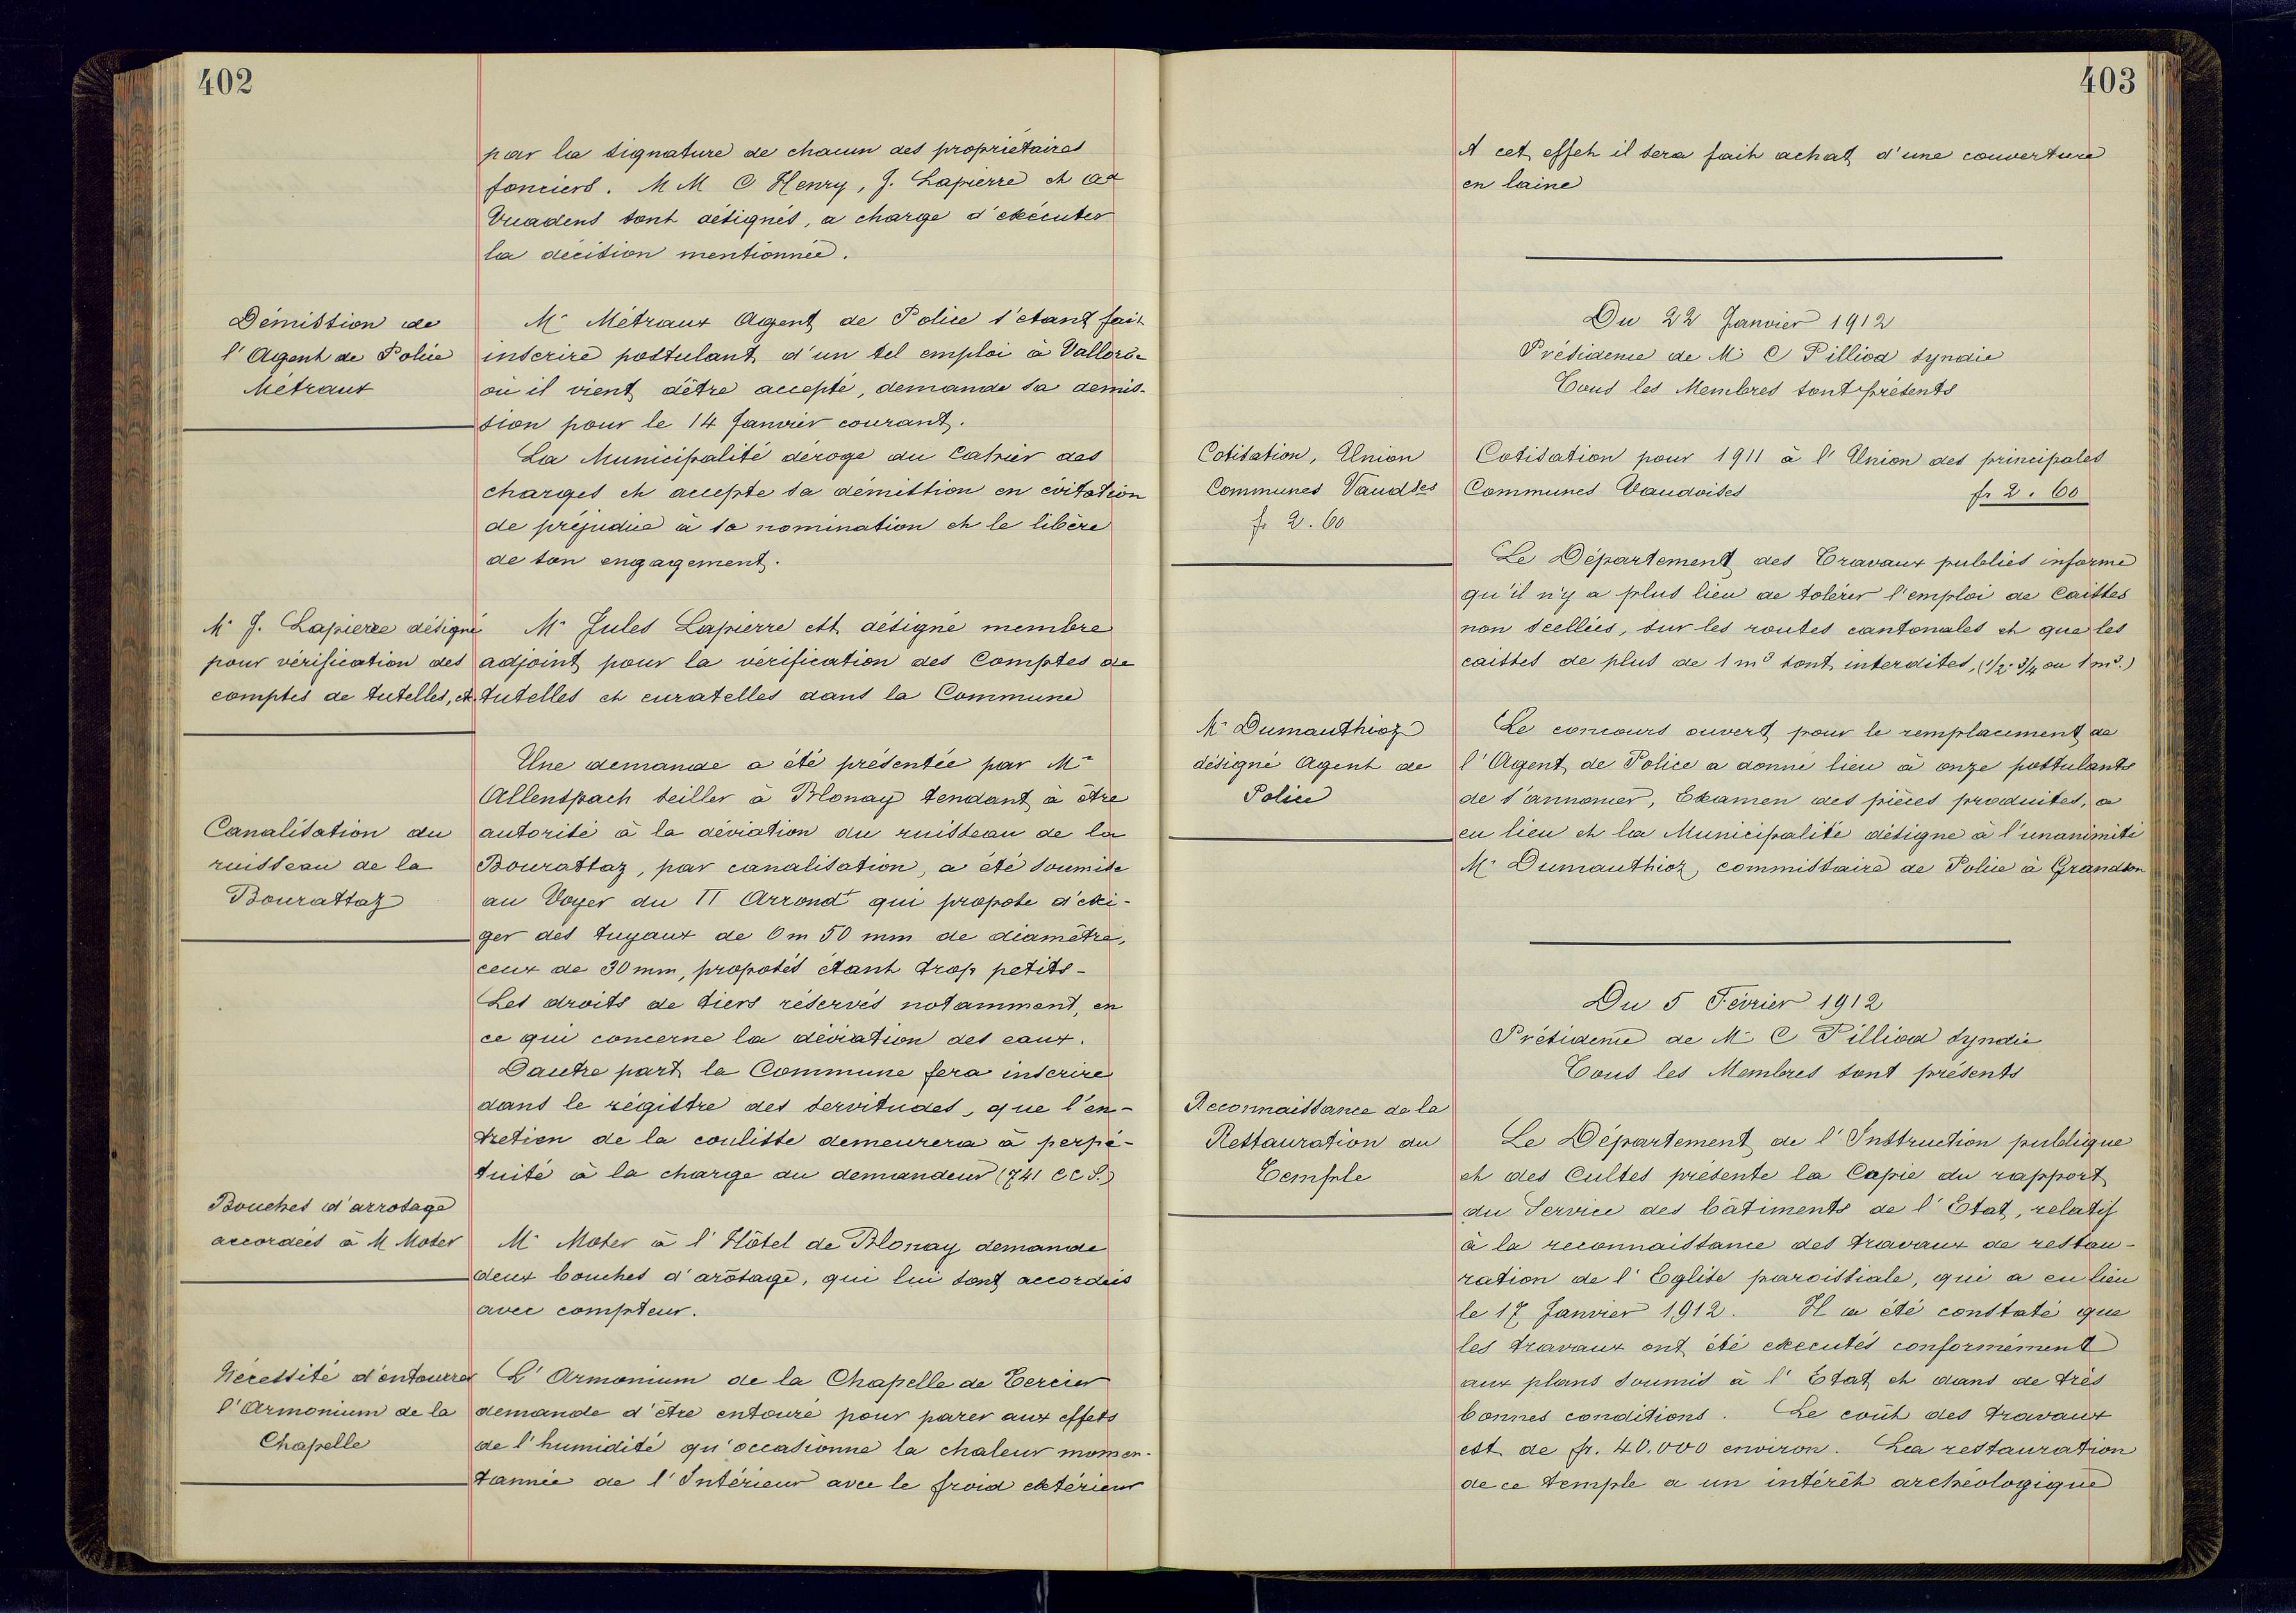 402
par la signature de chacun des propriétaires
fonciers. MM C Henry, J. Lapierre et Ad
Vuadens sont désignés, a charge d'exécuter
la décision mentionnée.
Démission de
l'Agent de Police
Métraux
Mr Métraux Agent de Police s'étant fait
inscrire postulant d'un tel emploi à Vallorbe
où il vient d'être accepté, demande sa demis-
sion pour le 14 Janvier courant.
La Municipalité déroge du Cahier des
charges et accepte sa démission en évitation
de préjudice à sa nomination et le libère
de son engagement.
Mr J. Lapierre désigné
pour vérification des
comptes de tutelles, et.
Mr Jules Lapierre est désigné membre
adjoint pour la vérification des Comptes de
tutelles et curatelles dans la Commune
Canalisation du
ruisseau de la
Bourattaz
Une demande a été présentée par Mr
Allenspach seiller à Blonay tendant à être
autorisé à la déviation du ruisseau de la
Bourattaz, par canalisation, a été soumise
au Voyer du II Arrondt qui propose d'exi-
ger des tuyaux de 0m 50 mm de diamètre,
ceux de 30mm, proposés étant trop petits-
Les droits de tiers réservés notamment, en
ce qui concerne la déviation des eaux.
Dautre part la Commune fera inscrire
dans le régistre des servitudes, que l'en-
tretien de la coulisse demeurera à perpé-
tuité à la charge du demandeur (741 CCS.)
Bouches d'arrosage
accordées à M Moser
Mr Moser à l'Hôtel de Blonay demande
deux bouches d'arôsage, qui lui sont accordées
avec compteur.
Nécessité d'entourer
l'Armonium de la
Chapelle
L'Armonium de la Chapelle de Tercier
demande d'être entouré pour parer aux effets
de l'humidité qu'occasionne la chaleur momen-
tannée de l'Intérieur avec le froid extérieur
403
A cet effet il sera fait achat d'une couverture
en laine
Du 22 Janvier 1912
Présidence de Mr C Pilliod syndic
Tous les Membres sont présents
Cotisation, Union
Communes Vaudses
fr 2.60
Cotisation pour 1911 à l'Union des principales
Communes Vaudoises fr 2.60
Le Département des Travaux publics informe
qu'il n'y a plus lieu de tolérer l'emploi de Caisses
non scellées, sur les routes cantonales et que les
caisses de plus de 1 m3 sont interdites, (1/2. 3/4 ou 1 m3.)
Mr Dumauthioz
désigné Agent de
Police
Le concours ouvert pour le remplacement de
l'Agent de Police a donné lieu à onze postulants
de s'annoncer, Examen des pièces produites, a
eu lieu et la Municipalité désigne à l'unanimité
Mr Dumauthioz, commissaire de Police à Grandson
Du 5 Février 1912
Présidence de Mr C Pilliod syndic
Tous les Membres sont présents
Reconnaissance de la
Restauration du
Temple
Le Département de l'Instruction publique
et des Cultes présente la Copie du rapport
du Service des bâtiments de l'Etat, relatif
à la reconnaissance des travaux de restau-
ration de l'Eglise paroissiale, qui a eu lieu
le 17 Janvier 1912. Il a été constaté que
les travaux ont été executés conformément
aux plans soumis à l'Etat et dans de très
bonnes conditions. Le coût des travaux
est de fr. 40.000 environ. La restauration
de ce temple a un intérêt archéologique